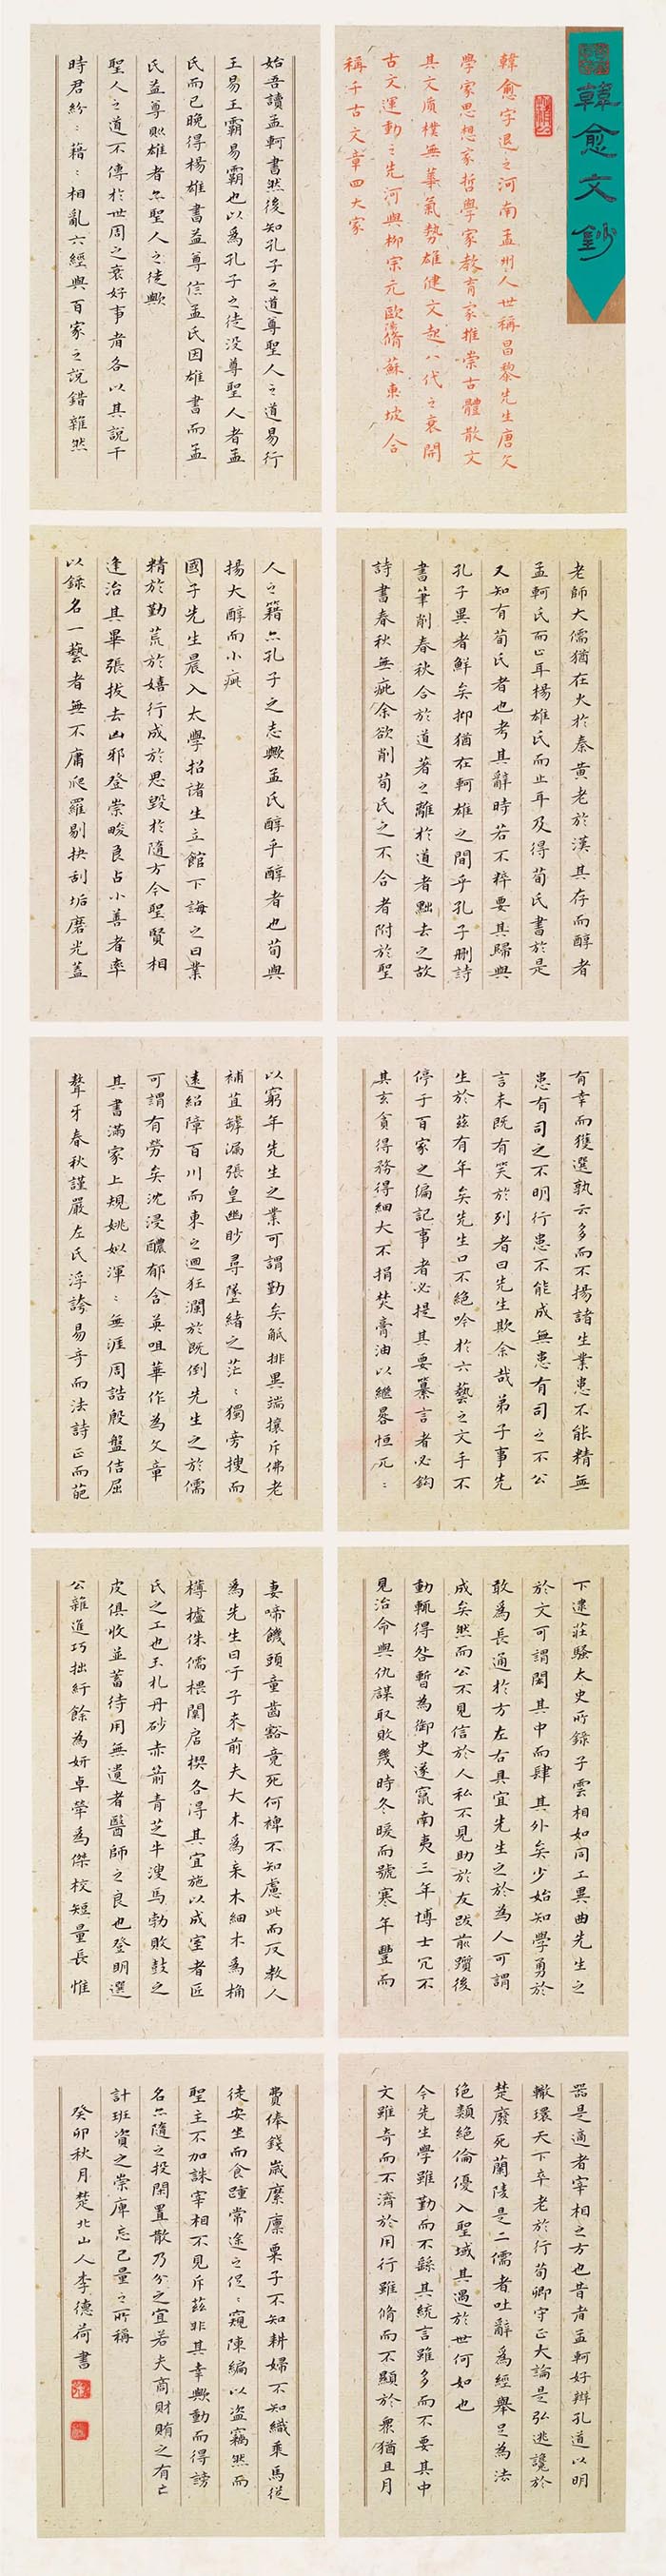 韓愈文鈔
韓愈字退之河南孟州人世稱昌黎先生唐文
學家思想家哲學家教育家推崇古體散文
其文質樸無華氣勢雄健文起八代之衰開
古文運動之先河與柳宗元歐陽脩蘇東坡合
稱千古文章四大家
始吾讀孟軻書然後知孔子之道尊聖人之道易行
王易王霸易霸也以為孔子之徒没尊聖人者孟
氏而已晚得楊雄書益尊信孟氏因雄書而孟
氏益尊則雄者亦聖人之徒歟
聖人之道不傳於世周之衰好事者各以其說干
時君紛〻藉〻相亂六經與百家之說錯雜然
老師大儒猶在火於秦黄老於漢其存而醇者
孟軻氏而止耳楊雄氏而止耳及得荀氏書於是
又知有荀氏者也考其辭時若不粹要其歸與
孔子異者鮮矣抑猶在軻雄之間乎孔子刪詩
書筆削春秋合於道著之離於道者黜去之故
詩書春秋無疵余欲削荀氏之不合者附於聖
人之籍亦孔子之志歟孟氏醇乎醇者也荀與
揚大醇而小疵
國子先生晨入太學招諸生立館下誨之曰業
精於勤荒於嬉行成於思毀於隨方今聖賢相
逢治具畢張拔去凶邪登崇畯良占小善者率
以錄名一藝者無不庸爬羅剔抉刮垢磨光蓋
有幸而獲選孰云多而不揚諸生業患不能精無
患有司之不明行患不能成無患有司之不公
言未既有笑於列者曰先生欺余哉弟子事先
生於茲有年矣先生口不絕吟於六藝之文手不
停于百家之編記事者必提其要纂言者必鉤
其玄貪得務得細大不捐焚膏油以繼晷恒兀〻
以窮年先生之業可謂勤矣觝排異端攘斥佛老
補苴罅漏張皇幽眇尋墜緒之茫〻獨旁搜而
遠紹障百川而東之迴狂瀾於既倒先生之於儒
可謂有勞矣沈浸醲郁含英咀華作為文章
其書滿家上規姚姒渾〻無涯周誥殷盤佶屈
聱牙春秋謹嚴左氏浮誇易奇而法詩正而葩
下逮莊騷太史所錄子雲相如同工異曲先生之
於文可謂閎其中而肆其外矣少始知學勇於
敢為長通於方左右具宜先生之於為人可謂
成矣然而公不見信於人私不見助於友跋前躓後
動輒得咎暫為御史遂竄南夷三年博士冗不
見治命與仇謀取敗幾時冬暖而號寒年豐而
妻啼饑頭童齒豁竟死何裨不知慮此而反教人
為先生曰吁子來前夫大木為杗木細木為桷
欂櫨侏儒椳闑扂楔各得其宜施以成室者匠
氏之工也玉札丹砂赤箭青芝牛溲馬勃敗鼓之
皮俱收並蓄待用無遺者醫師之良也登明選
公雜進巧拙紆餘為妍卓犖為傑校短量長惟
器是適者宰相之方也昔者孟軻好辯孔道以明
轍環天下卒老於行荀卿守正大論是弘逃讒於
楚廢死蘭陵是二儒者吐辭為經舉足為法
絕類絕倫優入聖域其遇於世何如也
今先生學雖勤而不繇其統言雖多而不要其中
文雖奇而不濟於用行雖脩而不顯於眾猶且月
費俸錢歲縻廩粟子不知耕婦不知織乘馬從
徒安坐而食踵常途之促〻窺陳編以盜竊然而
聖主不加誅宰相不見斥茲非其幸歟動而得謗
名亦隨之投閑置散乃分之宜若夫商財賄之有亡
計班資之崇庳忘己量之所稱
癸卯秋月楚北山人李德荷書